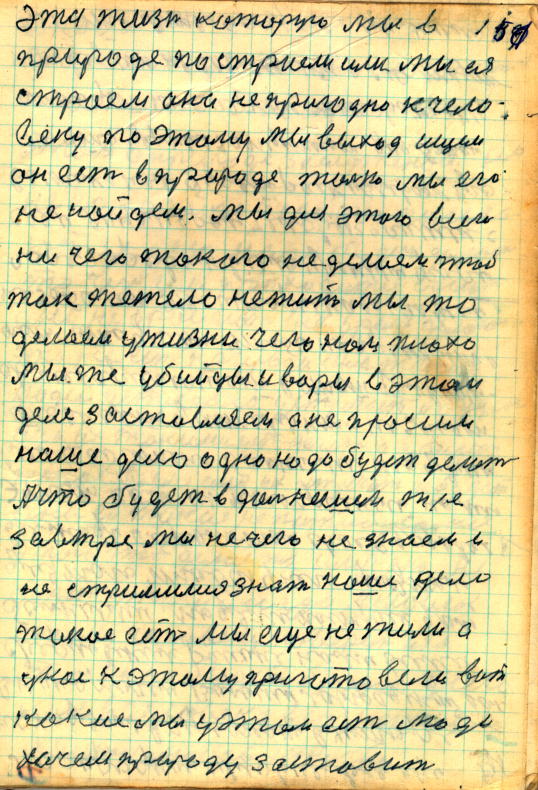 Эта жизн которую мы в 157
природе постриели или мы ея
строем она непригодно к чело-
веку по этому мы выход ищем
он ест в природе толко мы его
не найдем. мы для этого всего
ни чего такого не делаем штоб
так тежело нежить мы то
делаем ужизни чего нам плохо
мы же убийцы и воры в этом
деле заставляем а не просим
наше дело одно надо будет делат
А что будет в далнешем
завтре мы нечего не знаем и
не стримимся знат наше дело
такое ест мы еще не жили а
уже к этому приготовели вот
какие мы уэтом ест люди
хочем природу заставит